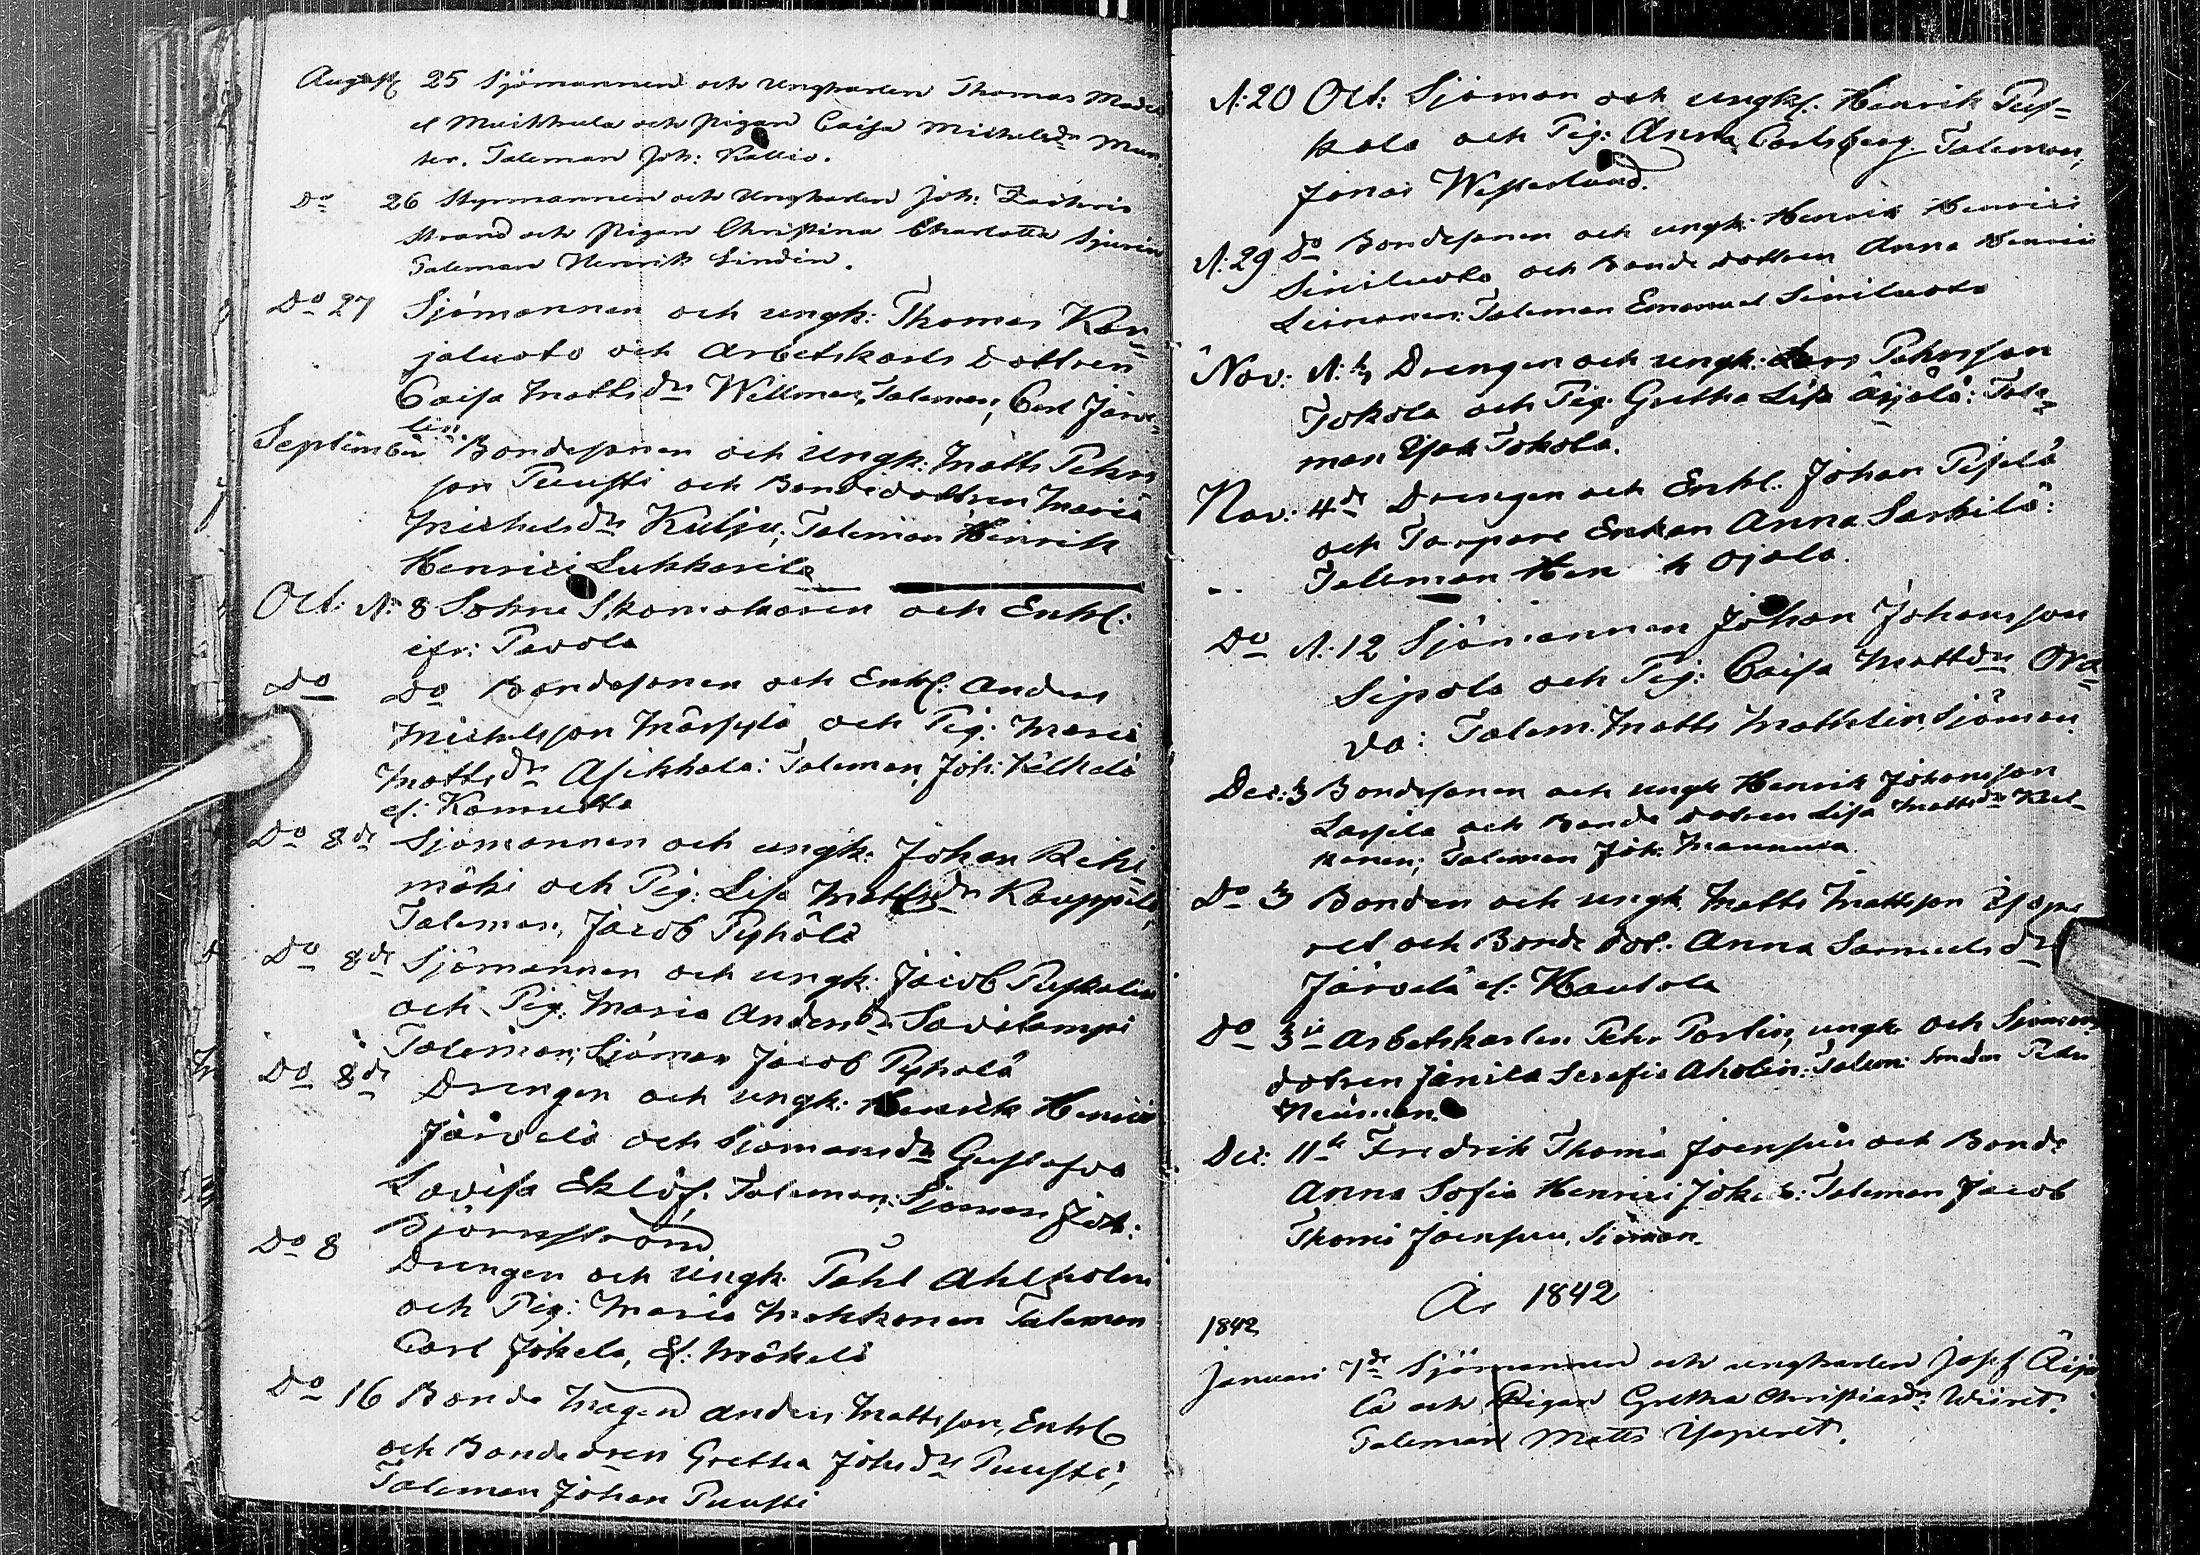 August 25 Sjömannen och Ungkarlen Thomas
el Muikkula och pigan Caisa Michelsdr
Taleman Joh: Kallio.
Do 26 Styrmannen och Ungkarlen Joh: Zachris
Strand och Pigan Christina Charlotta
Taleman Henrik Lindén.
Do 27 Sjömannen och ungk: Thomas Kar-
jaluoto och Arbetskarls dottren
Caisa Mattsdr Willman, Taleman, Carl Järve-
lin
September Bondesonen och Ungk: Matts Pehrs
son Puusti och Bondedottren Maria
Michelsdr Kulju, Taleman Henrik
Henrici Lukkarila
Oct: N: 8 Sokne Skomakaren och Enkl:
Pavola
Do Do Bondesonen och Enkl: Anders
Michelsson Märsylä och Pig: Maria
Mattsdr Asikkala: Taleman, Joh:
el: Kamutta
Do 8de Sjömannen och ungk: Johan Riihi-
mäki och Pig: Lisa Mattsdr Kauppila
Taleman, Jacob Pyhälä
Do 8de Sjömannen och ungk: Jacob
och Pig: Maria Andersdr Savilampi
Taleman, Sjöman Jacob Pyhälä
Do 8de Drengen och ungk: Henrik Henrici
Järvelä och Sjömansdr Gustafva
Lovisa Eklöf, Taleman, Sjöman Joh:
Björnström
Do 8 Drengen och Ungk. Påhl Ahlholm
och Pig: Maria Makkonen Taleman
Carl Jokela, el: Mäkelä
Do 16 Bonde Mågen Anders Mattsson, Enkl
och Bondedren Gretha Johsdr Puusti,
Taleman Johan Puusti
N: 20 Oct: Sjöman och ungkl. Henrik Pus-
kala och Pig: Anna Carlsberg Taleman,
Jonas Westerlund.
N: 29 Do Bondesonen och ungk: Henrik Henrici
Siniluoto och Bonde dottren Anna Henrici
Leinonen: Taleman Emanuel Siniluoto
Nov: N: Drengen och ungk: Lars Pehrsson
Tokola och Pig. Gretha Lisa Äijälä: Tale-
man Isak Tokola.
Nov: 4de Drengen och Enkl: Johan
och Torpare Enkan Anna Sarkilä:
Taleman Hen ik Ojala.
Do N: 12 Sjömannen Johan Johansson
Sipola och Pig: Caisa Mattsdr Ora-
va: Talem: Matts Mathlin, Sjöman.
Dec: 3 Bondesonen och ungk Henrik Johansson
Lassila och Bonde dotren Lisa Mattsdr
Taleman Joh: Maunula
Do 3 Bonden och ungk. Matts Mattsson Ysope
ret och Bonde dot: Anna Samuelsdr
Järvelä el: Hautala
Do 3de Arbetskarlen Pehr Portin, ungk och Sjömans
dotren Janika Serafia Aholin: Talem: Smeden Pehr
Neuman.
Dec: 11te Fredrik Thoma Joensuu och Bonde
Anna Sofia Henrici Jokela: Taleman Jacob
Thoma Joensuu, Sjöman.
År 1842
1842
Januari 7de Sjömannen och ungkarlen Josef Äijä
lä och Pigan Gretha Christiansdr Wiiret.
Taleman Matts Ysoperet.